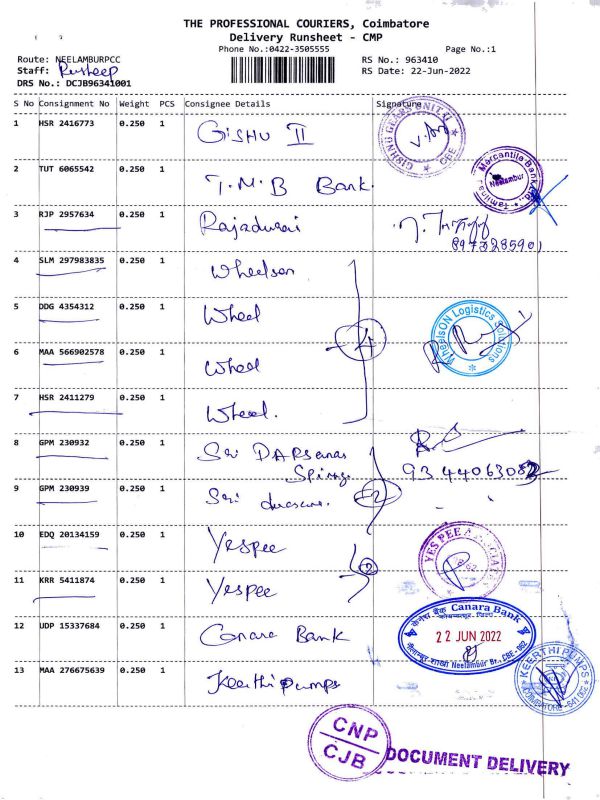 THE PROFESSIONAL COURIERS, Coimbatore
Delivery Runsheet - CMP
Phone No.:0422-3505555
Page No.:1
Route: NEELAMBURPCC
RS No.: 963410
Staff:
RS Date: 22-Jun-2022
DRS No.: DCJB96341001
S No Consignment No Weight PCS Consignee Details Signature
1 HSR 2416773 0.250 1 GISHU II
GISHNU GEARS UNIT II CBE
2 TUT 6065542 0.250 1 T.M.B Bank.
Tamilnad Mercantile Bank Ltd., Neelambur
3 RJP 2957634 0.250 1 Rajadurai
8973285901
4 SLM 297983835 0.250 1 Wheelson
5 DDG 4354312 0.250 1 Wheel
WheelsON Logistics Solutions
6 MAA 566902578 0.250 1 Wheel
4
7 HSR 2411279 0.250 1 Wheel.
8 GPM 230932 0.250 1 Sri DARsanas
Spinngs
9344063082
9 GPM 230939 0.250 1 Sri
2
10 EDQ 20134159 0.250 1 Yespee
YES PEE ASSOCIATES
11 KRR 5411874 0.250 1 Yespee
2
12 UDP 15337684 0.250 1 Canara Bank
केनरा बैंक Canara Bank
22 JUN 2022
Neelambur Br., CBE - 062
13 MAA 276675639 0.250 1 Keerthi Pumps
KEERTHI PUMPS COIMBATORE - 641 062
CNP
CJB
DOCUMENT DELIVERY